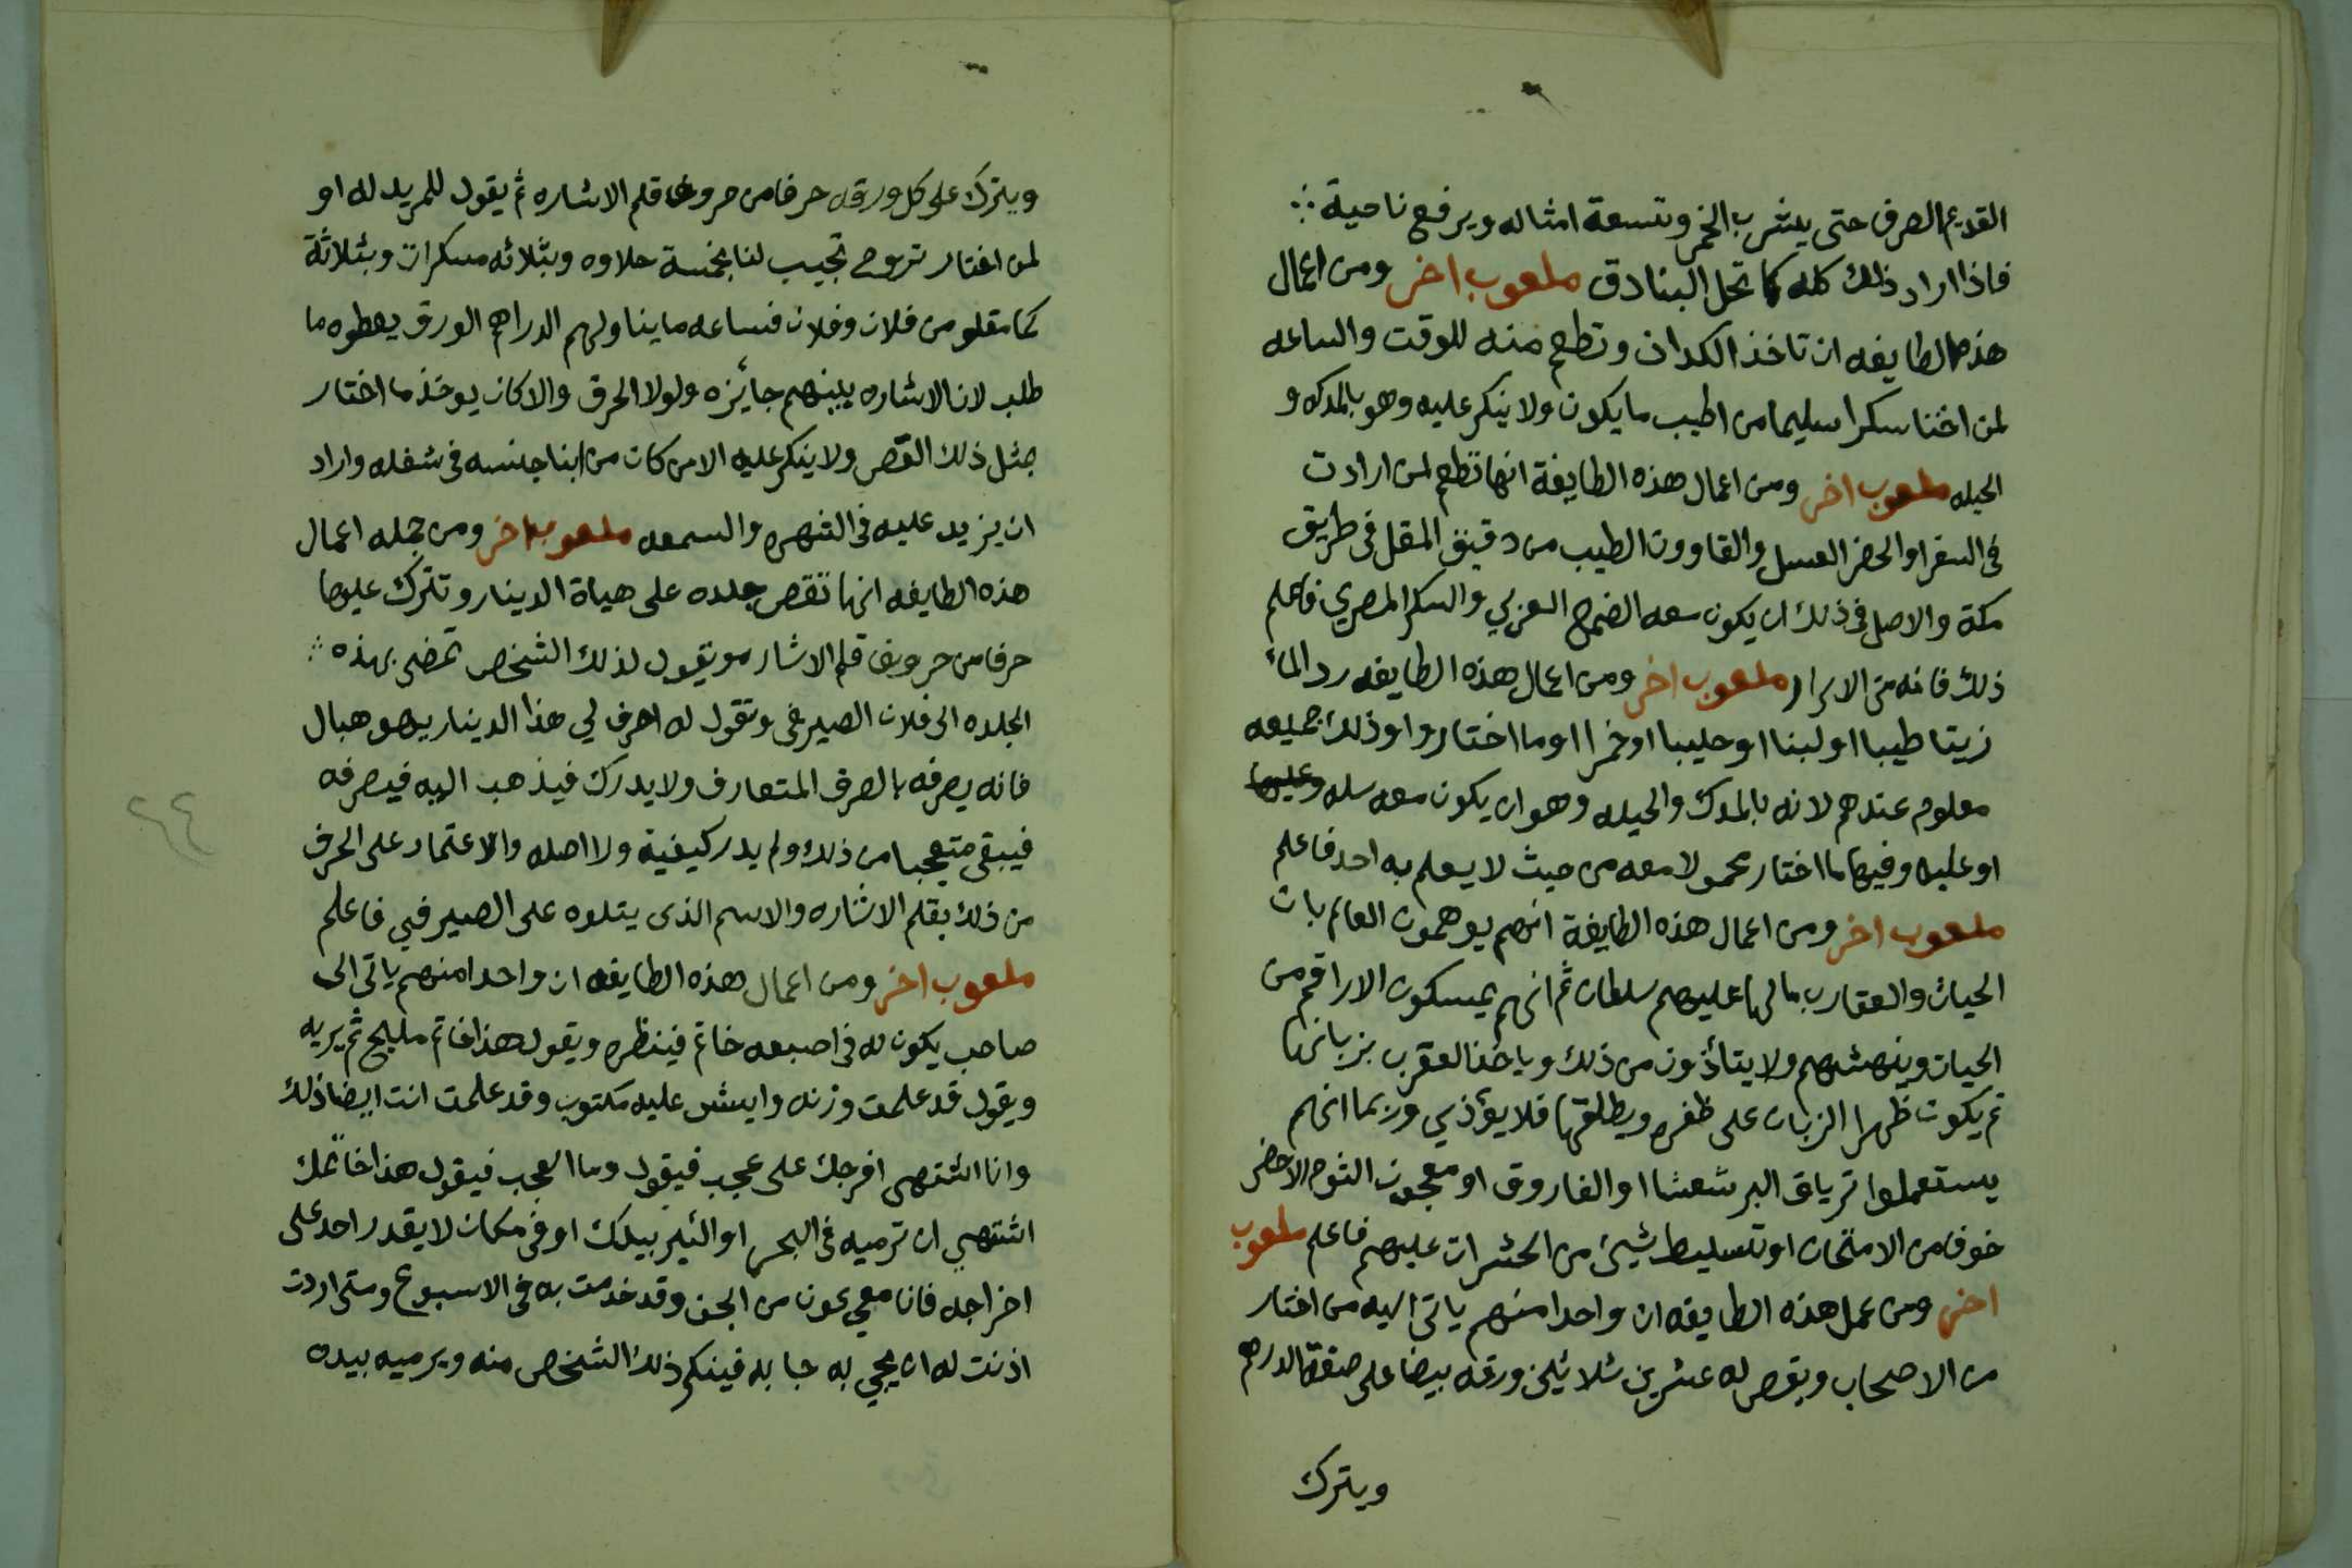 القديم الصرف حتى يشرب الخمر وتسعة امثاله ويرفع ناحية
فاذا اراد ذلك كله كما تحل البنادق ملعوب اخر ومن اعمال
هذه الطايفه ان تاخذ الكدان وتطعم منه للوقت والساعه
لمن اختا سكرا سليما من اطيب ما يكون ولا ينكر عليه وهو بالمدكه و
الحيله ملعوب اخر ومن اعمال هذه الطايفة انها تطعم لمن ارادت
فى السفر او الحضر العسل والقاووت الطيب من دقيق المقل فى طريق
مكة والاصل فى ذلك ان يكون معه الصمغ العربي والسكر المصري فاعلم
ذلك فانه من الاسرار ملعوب اخر ومن اعمال هذه الطايفه رد الماء
زيتا طيبا او لبنا او حليبا او خمرا او ما اختاروا وذلك جميعه
معلوم عندهم لانه بالمدك والحيله وهو ان يكون معه سله وعليها
او علبه وفيها ما اختار محمولا معه من حيث لا يعلم به احد فاعلم
ملعوب اخر ومن اعمال هذه الطايفة انهم يوهمون العالم بان
الحيات والعقارب ما لها عليهم سلطان ثم انهم يمسكون الاراقم من
الحيات وينهشهم ولا يتأذون من ذلك وياخذ العقرب بزبانها
ثم يكون ظهر الزبان على ظفره ويطلقها فلا يؤذي وربما انهم
يستعملوا ترياق البرشعشا او الفاروق او معجون الثوم الاخضر
خوفا من الامتحان او تسليط شيئ من الحشرات عليهم فاعلم ملعوب
اخر ومن عمل هذه الطايفه ان واحدا منهم ياتى اليه من اختار
من الاصحاب ويقص له عشرين ثلاثين ورقه بيضا على صفة الدرهم
ويترك
ويترك على كل ورقه حرفا من حروف قلم الاشاره ثم يقول للمريد له او
لمن اختار تروح تجيب لنا بخمسة حلاوه وبثلاثه مسكرات وبثلاثة
كما مقلو من فلان وفلان فساعه ما يناولهم الدراهم الورق يعطوه ما
طلب لان الاشاره بينهم جائزه ولولا الحرق والا كان يوخذ ما اختار
بمثل ذلك القص ولا ينكر عليه الا من كان من ابنا جنسه فى شغله واراد
ان يزيد عليه فى الشهره والسمعه ملعوب اخر ومن جمله اعمال
هذه الطايفه انها تقص جلده على هياة الدينار وتترك عليها
حرفا من حروف قلم الاشاره وتقول لذلك الشخص تمضى بهذه
الجلده الى فلان الصيرفى وتقول له اصرف لي هذا الدينار وهو هبال
فانه يصرفه بالصرف المتعارف ولا يدرك فيذهب اليه فيصرفه
فيبقى متعجبا من ذلك ولم يدر كيفية ولا اصله والاعتماد على الحرف
من ذلك بقلم الاشاره والاسم الذى يتلوه على الصيرفي فاعلم
ملعوب اخر ومن اعمال هذه الطايفه ان واحدا منهم ياتى الى
صاحب يكون له فى اصبعه خاتم فينظره ويقول هذا خاتم مليح ثم يريه
ويقول قد علمت وزنه وايش عليه مكتوب وقد علمت انت ايضا ذلك
وانا اشتهى افرجك على عجب فيقول وما العجب فيقول هذا خاتمك
اشتهي ان ترميه فى البحر او البئر بيدك او فى مكان لا يقدر احد على
اخراجه فانا معي عون من الجن وقد خدمت به فى الاسبوع ومتى اردت
اذنت له ان يجي به جا به فينكر ذلك الشخص منه ويرميه بيده
٢٤